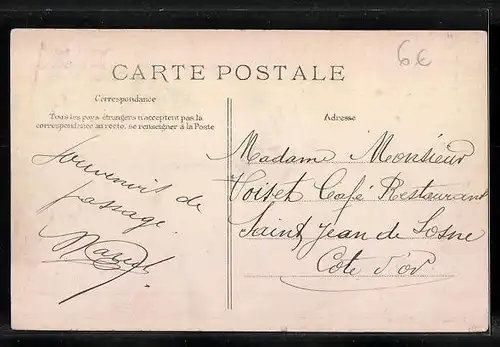 6€
CARTE POSTALE
Correspondance
Tous les pays étrangers n'acceptent pas la
correspondance au recto, se renseigner à la Poste
Adresse
Souvenirs de
passage
Madame Monsieur
Voiset Café Restaurant
Saint Jean de Losne
Côte d'or